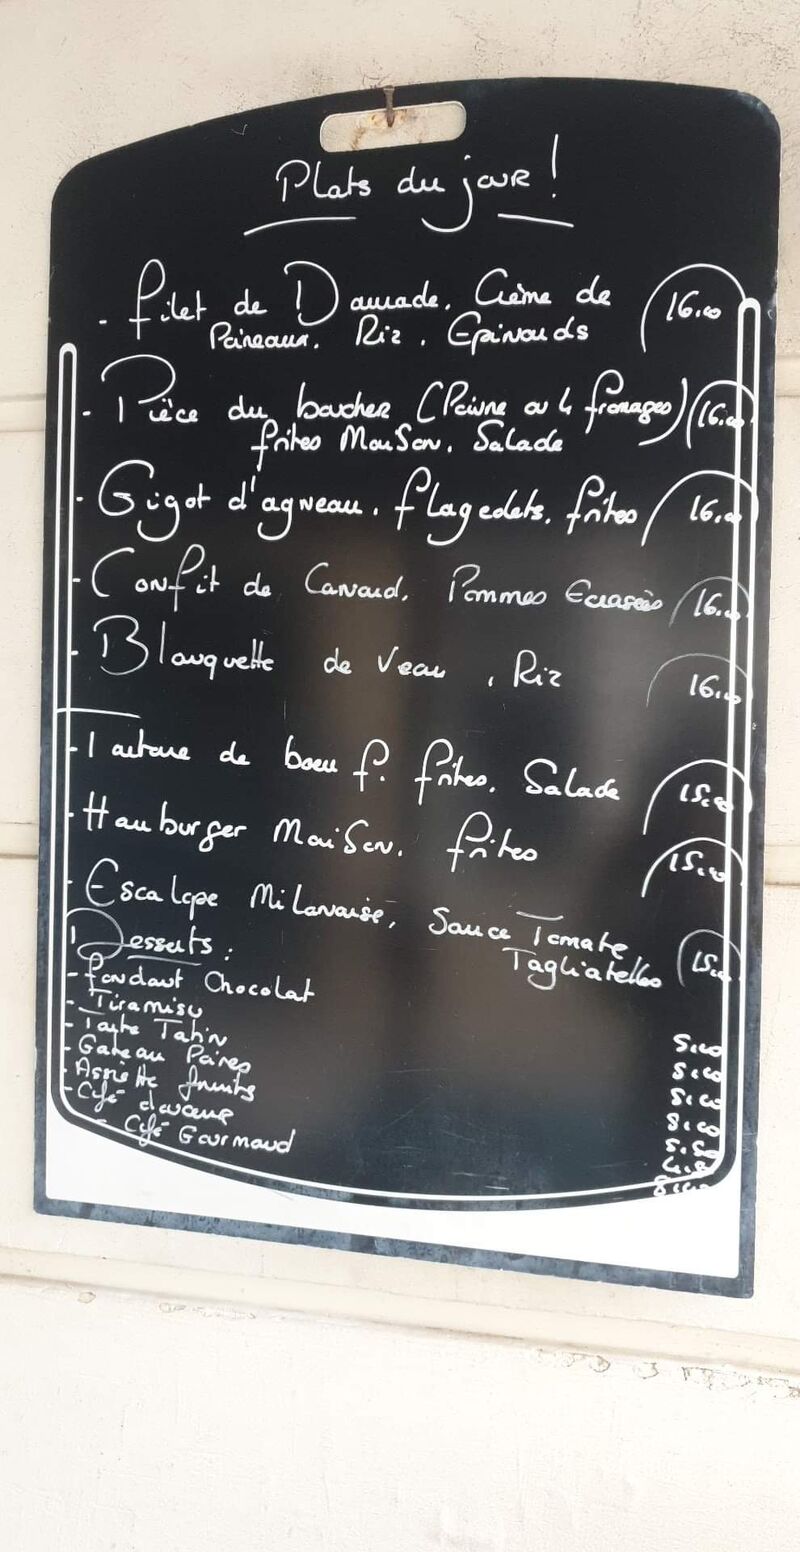 Plats du jour !
- Filet de Daurade. Crème de 16.00
Poireaux. Riz. Epinards
- Pièce du boucher (Poivre ou 4 fromages) 16.00
frites Maison. Salade
- Gigot d'agneau. flageolets. frites 16.00
- Confit de Canard. Pommes Ecrasées 16.00
- Blanquette de Veau, Riz 16.00
- Tartare de boeuf. frites. Salade 15.00
- Hamburger Maison. frites 15.00
- Escalope Milanaise, Sauce Tomate
Tagliatelles 15.00
Desserts :
- fondant Chocolat 5.00
- Tiramisu 5.00
- Tarte Tatin 5.00
- Gateau Poires
- Assiette fruits
- Café
- Café Gourmand